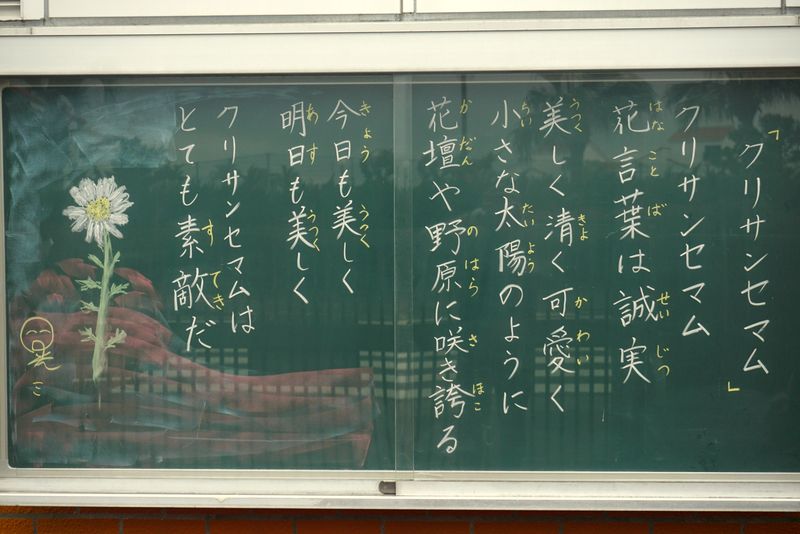 「クリサンセマム」
クリサンセマム
花言葉は誠実
はな ことば せいじつ
美しく清く可愛く
うつく きよ かわい
小さな太陽のように
ちい たいよう
花壇や野原に咲き誇る
かだん のはら さ ほこ
今日も美しく
きょう うつく
明日も美しく
あす うつく
クリサンセマムは
とても素敵だ
すてき